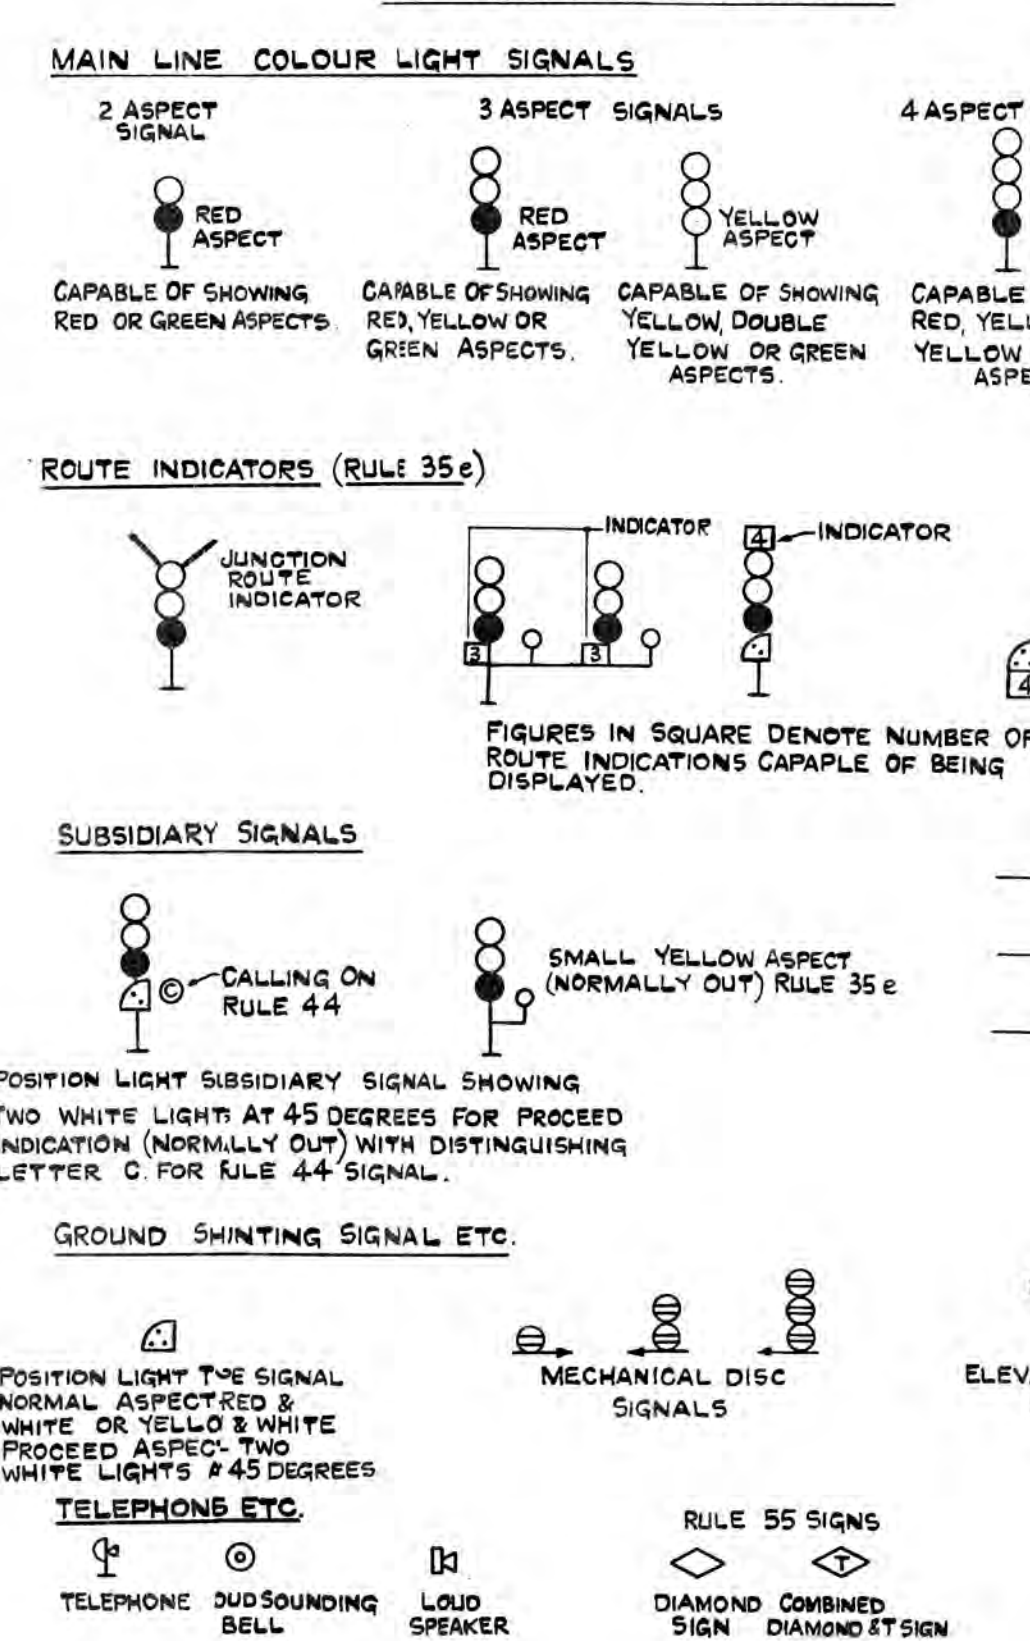 MAIN LINE COLOUR LIGHT SIGNALS
2 ASPECT
SIGNAL
3 ASPECT SIGNALS
4 ASPECT
RED
ASPECT
RED
ASPECT
YELLOW
ASPECT
CAPABLE OF SHOWING
RED OR GREEN ASPECTS.
CAPABLE OF SHOWING
RED, YELLOW OR
GREEN ASPECTS.
CAPABLE OF SHOWING
YELLOW, DOUBLE
YELLOW OR GREEN
ASPECTS.
CAPABLE
RED, YELL
YELLOW
ASPE
ROUTE INDICATORS (RULE 35e)
JUNCTION
ROUTE
INDICATOR
INDICATOR
3
3
4
INDICATOR
4
FIGURES IN SQUARE DENOTE NUMBER OF
ROUTE INDICATIONS CAPAPLE OF BEING
DISPLAYED.
SUBSIDIARY SIGNALS
C
CALLING ON
RULE 44
SMALL YELLOW ASPECT
(NORMALLY OUT) RULE 35 e
POSITION LIGHT SUBSIDIARY SIGNAL SHOWING
TWO WHITE LIGHTS AT 45 DEGREES FOR PROCEED
INDICATION (NORMALLY OUT) WITH DISTINGUISHING
LETTER C. FOR RULE 44 SIGNAL.
GROUND SHUNTING SIGNAL ETC.
POSITION LIGHT TYPE SIGNAL
NORMAL ASPECT RED &
WHITE OR YELLO & WHITE
PROCEED ASPECT- TWO
WHITE LIGHTS 45 DEGREES
MECHANICAL DISC
SIGNALS
ELEV
TELEPHONE ETC.
TELEPHONE
OUD SOUNDING
BELL
LOUD
SPEAKER
RULE 55 SIGNS
T
DIAMOND
SIGN
COMBINED
DIAMOND & T SIGN